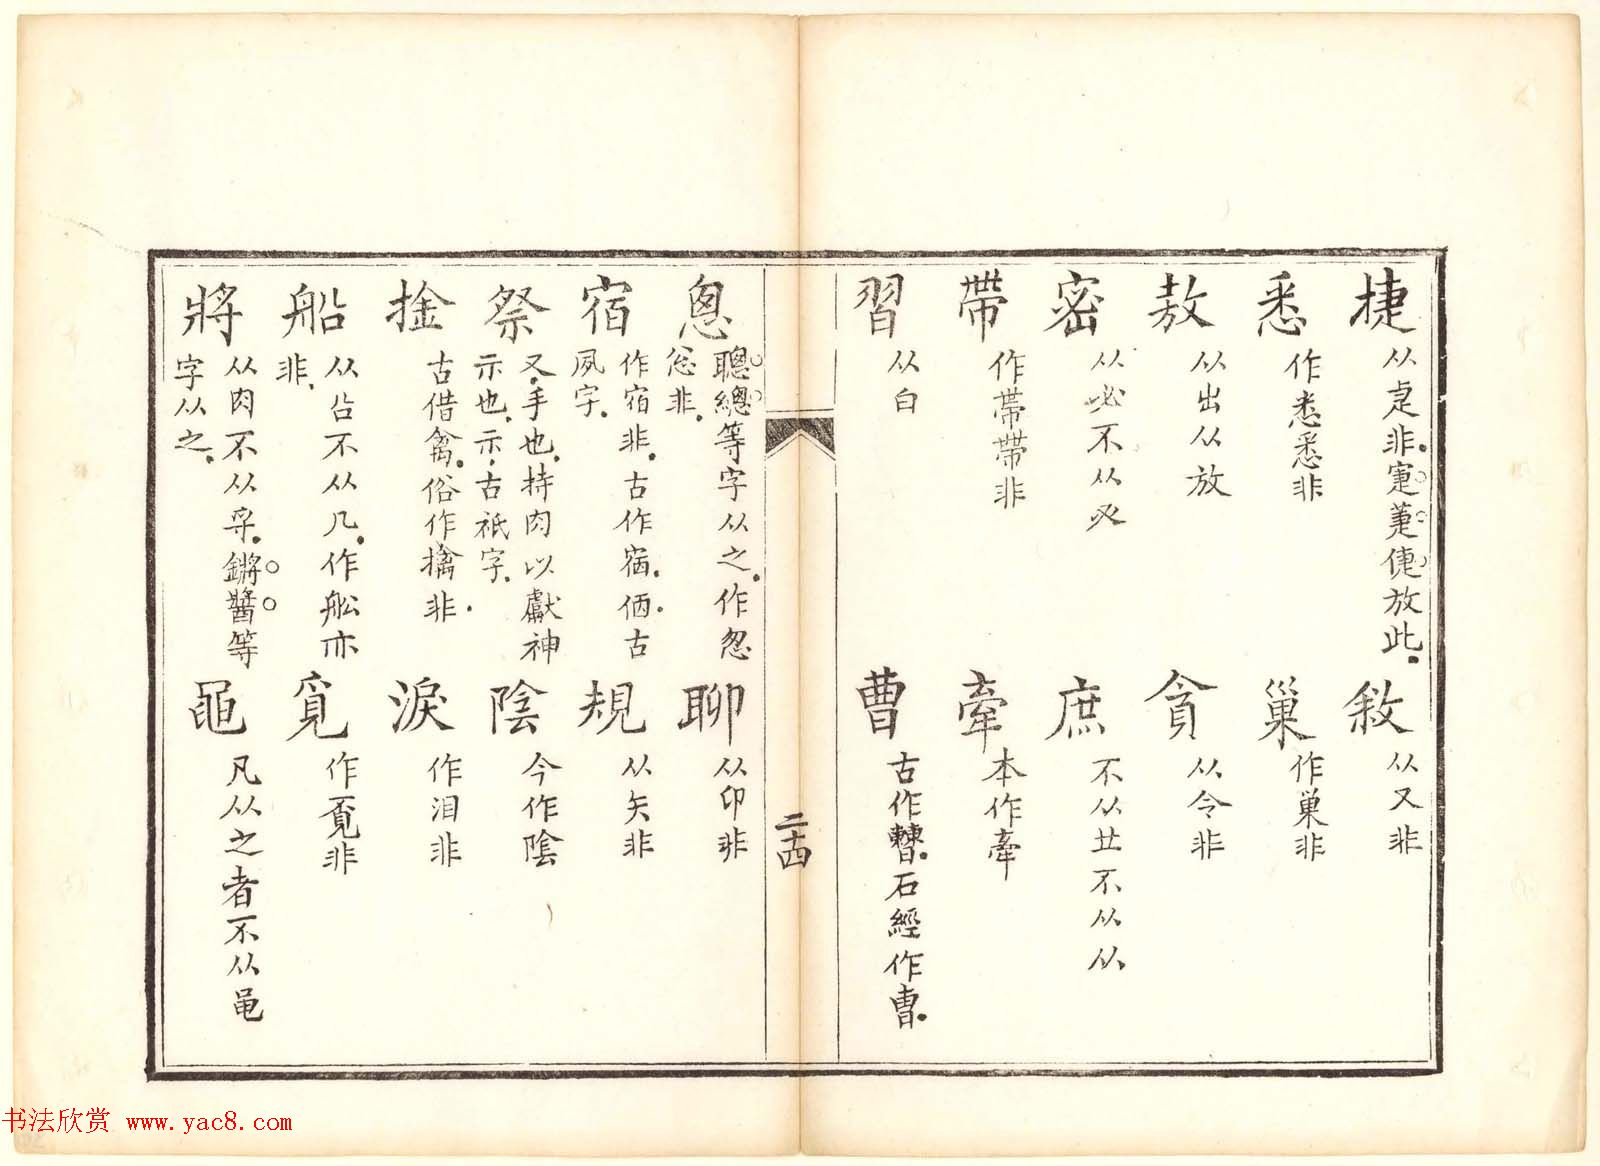 捷 从疌非.寁萐倢放此.
敘 从又非
悉 作悉悉非
巢 作巢非
敖 从出从放
貪 从令非
密 从必不从必
庶 不从廿不从从
帶 作帶帶非
牽 本作牽
習 从白
曹 古作𣍘.石經作曺.
二十四
悤 聰總等字从之.作怱
忩非.
聊 从卬非
宿 作宿非.古作㝛.㐁古
夙字.
規 从矢非
祭 又.手也.持肉以獻神
示也.示.古祇字.
陰 今作陰
捦 古借禽.俗作擒非.
淚 作泪非
船 从㕣不从几.作舩亦
非.
覓 作覔非
將 从肉不从寽.鏘醬等
字从之.
黽 凡从之者不从黾
书法欣赏 www.yac8.com